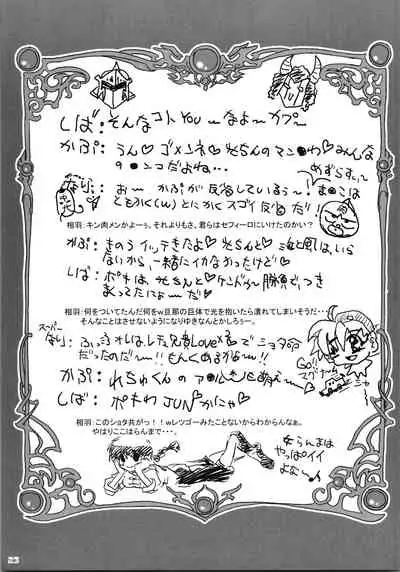 しば：そんなコトYOU〜なよ〜カプー
かぷ：うん♡ゴメンネ♡光ちんのマン●わ♡みんな
の●ンコだよね…
めずらすぃ…
なり：お〜かぷが反省しているぅ〜！ま●こは
ともかく(w)とにかくスゴイ反省だ!!
相羽：キン肉メンかよーぅ。それよりもさ。君らはセフィーロにいけたのかい？
かぷ：きのうイッテきたよ♡光ちんと♡海と風は、いら
ないから、一緒にイカなかったけど♡
しば：ボキは、光ちんと♡ケンドー勝負で、つき
まってたにょーだ！♡
相羽：何をついてたんだ何をw旦那の巨体で光を抱いたら潰れてしまいそうだ…
そんなことはさせないようになりゆきなんとかしろぅー。
スーパー
なり：ふぅ…オレはレ兄弟Love×2でショタ命
だったのだー!!もんくあるかー!!
Go!!
マグナム
かぷ：れちゅくんのア●ル♡に萌え〜
しば：ボキわJUN♡かにゃ♡
相羽：このショタ共がっ！！wレツゴーみたことないからわからんなぁ。
やはりここはらんまで…。
女らんまは
やっぱイイ
よな〜♪